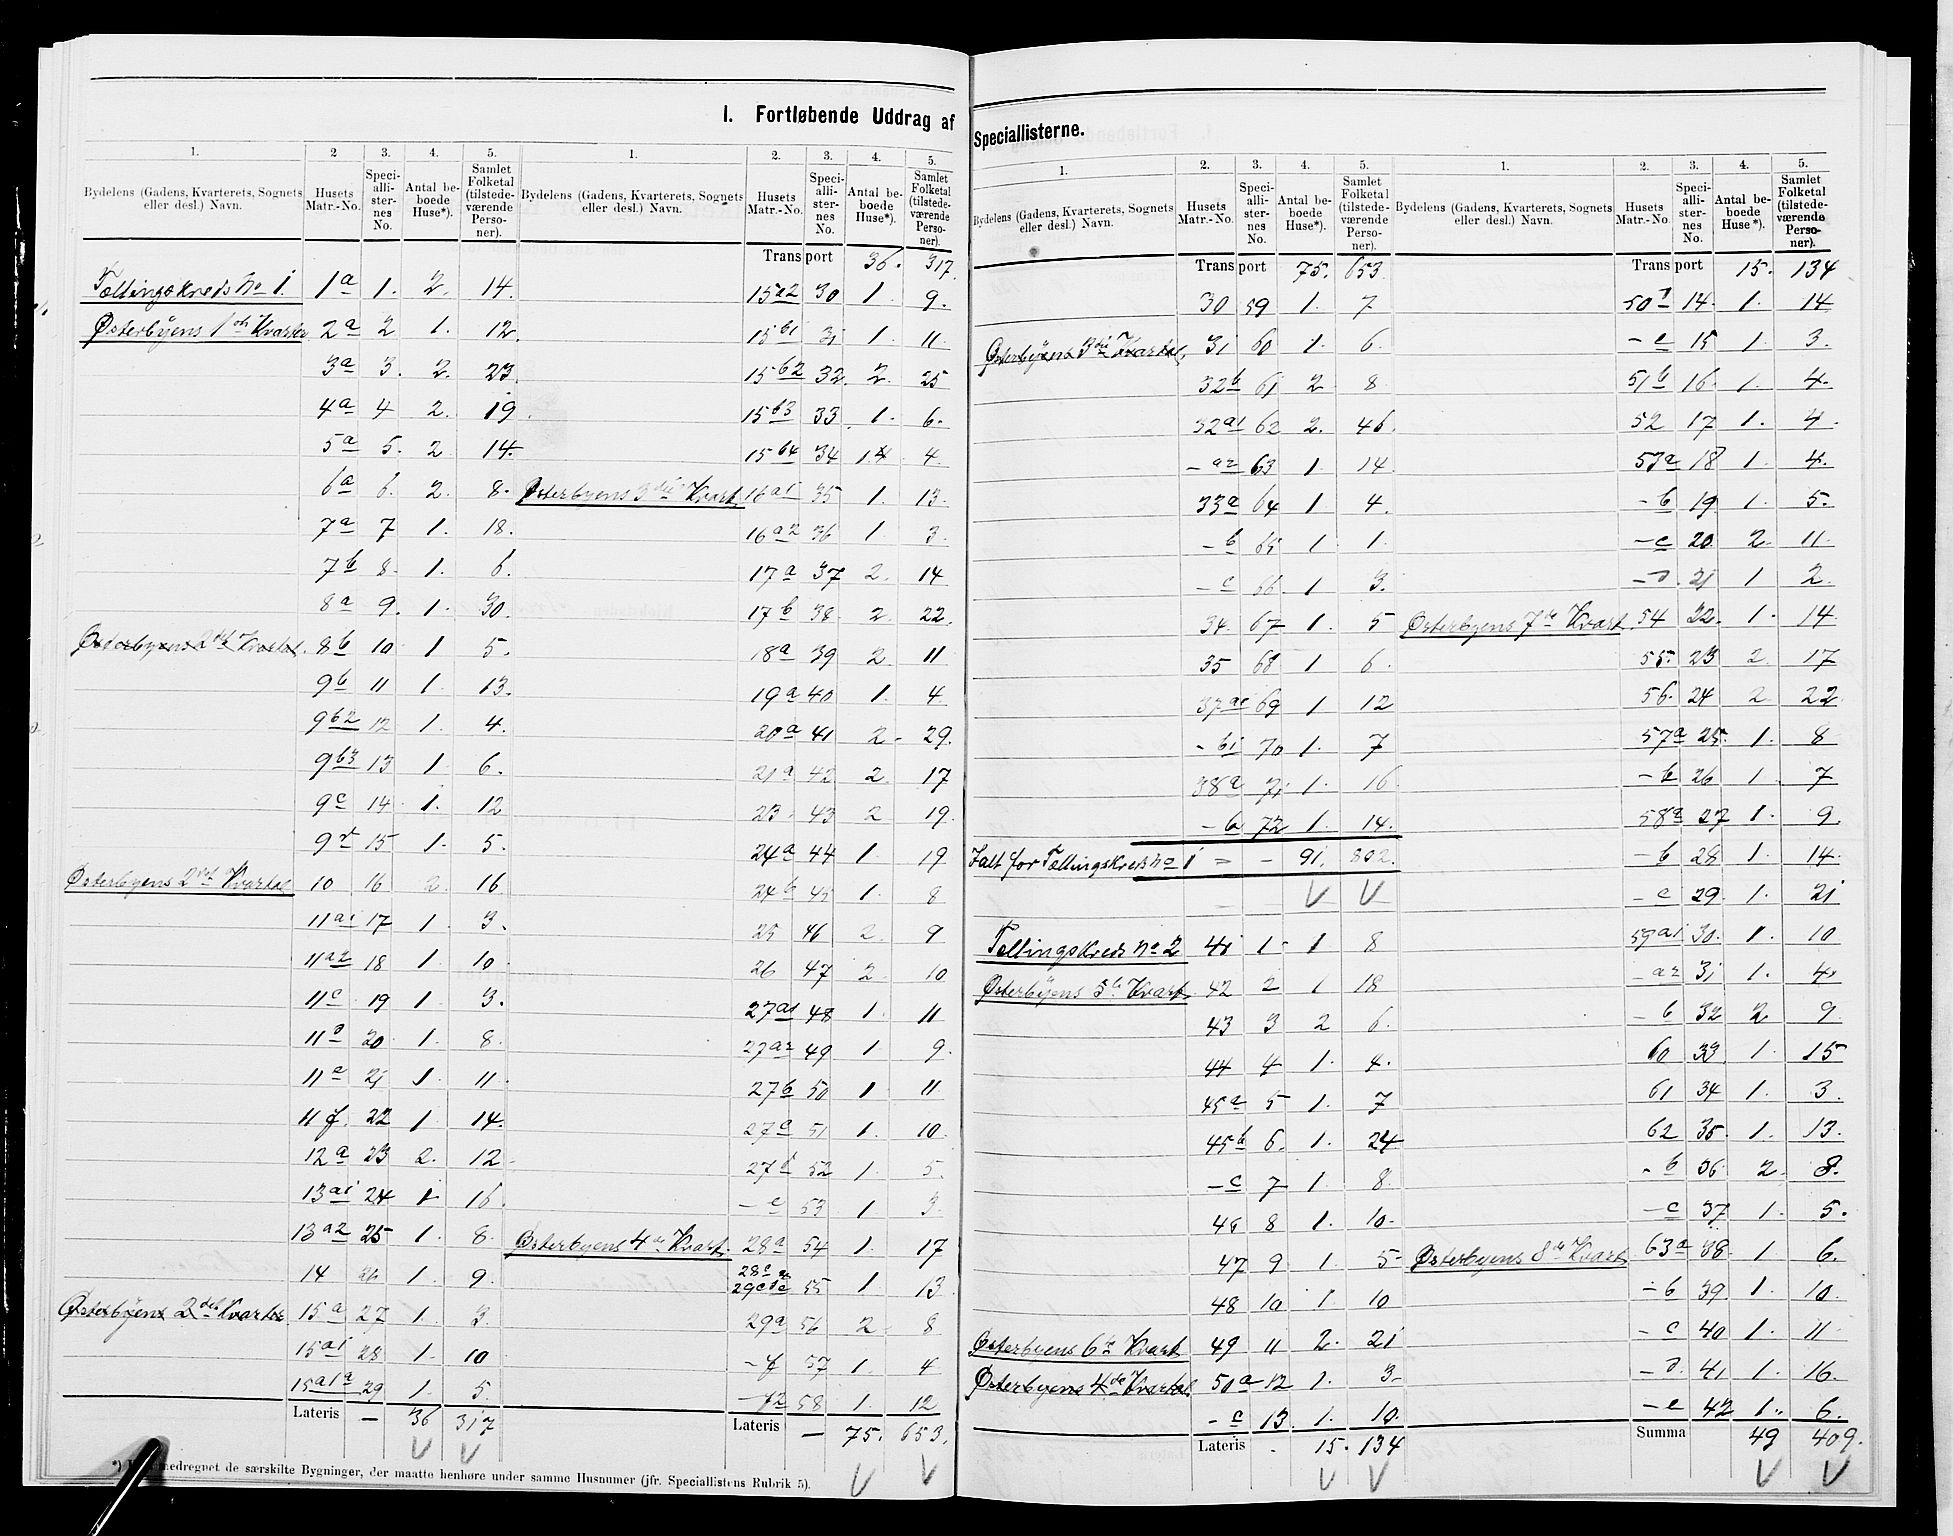 I. Fortløbende Uddrag af Speciallisterne.
1. 2 3. 4. 5.
Bydelens (Gadens, Kvarterets, Sognets eller desl.) Navn. Husets Matr.-No. Speciallisternes No. Antal beboede Huse*). Samlet Folketal (tilstedeværende Personer).
Tællingskreds No 1. 1a 1. 2. 14.
Østerbyens 1ste Kvarter 2a 2 1. 12.
3a 3. 2. 23.
4a 4 2. 19.
5a 5. 2. 14.
6a 6. 2. 8.
7a 7 1. 18.
7b 8. 1. 6.
8a 9. 1. 30.
Østerbyens 2det Kvartal. 8b 10 1 5.
9b 11 1. 13.
9b2 12 1. 4.
9b3 13 1 6.
9c 14 1. 12
9d 15 1. 5.
Østerbyens 2det Kvartal 10 16 2. 16
11a1 17 1. 3.
11a2 18 1. 10.
11c 19 1 3.
11d 20. 1. 8.
11e 21 1. 11.
11f. 22 1. 14.
12a 23 2. 12
13a1 24 1 16.
13a2 25 1. 8.
14 26 1. 9.
Østerbyens 2det Kvarter 15a 27 1. 3.
15a1 28 1. 10
15a1a 29 1. 5.
Lateris — 36 317
1. 2. 3. 4. 5.
Bydelens (Gadens, Kvarterets, Sognets eller desl.) Navn. Husets Matr.-No. Speciallisternes No. Antal beboede Huse*). Samlet Folketal (tilstedeværende Personer).
Transport 36. 317.
15a2 30 1. 9.
15b1 31 1. 11.
15b2 32. 2. 25
15b3 33 1. 6.
15b4 34 1. 4.
Østerbyens 3die Kvart. 16a1 35 1. 13.
16a2 36 1 3.
17a 37 2. 14
17b 38 2. 22.
18a 39 2 11
19a 40 1. 4
20a 41 2 29.
21a 42 2. 17
23 43 2 19.
24a 44 1. 19
24b 45 1. 8
25 46 2. 9
26 47 2. 10
27a1 48 1. 11
27a2 49 1 9.
27b 50 1 11
27c 51 1. 10.
27d 52 1. 5.
— e 53 1 3.
Østerbyens 4de Kvart. 28a 54 1. 17
28c 29c 55 1 13.
29a 56 2 8
— f 57 1. 4
— f2 58 1. 12
Lateris — 75. 653.
*) medregnet de særskilte Bygninger, der maatte henhøre under samme Husnumer (jfr. Speciallistens Rubrik 5).
1. 2. 3. 4. 5.
Bydelens (Gadens, Kvarterets, Sognets eller desl.) Navn. Husets Matr.-No. Speciallisternes No. Antal beboede Huse*). Samlet Folketal (tilstedeværende Personer).
Transport 75. 653.
30 59 1. 7
Østerbyens 3die Kvartal. 31 60 1. 6.
32b 61 2 8
32a1 62 2. 46.
— a2 63 1. 14
33a 64 1 4.
— b 65 1 1.
— c 66 1 3.
34. 67 1. 5
35 68 1 6.
37a1 69 1 12
— b1 70 1. 7
38a 71 1. 16.
— b 72 1. 14.
Ialt for Tællingskreds No 1 = — 91. 802.
Tællingskreds No 2 41 1 1 8
Østerbyens 5te Kvart. 42 2 1 18
43 3 2 6.
44 4 1. 4.
45a 5 1. 7
45b 6. 1. 24
— c 7 1 8.
46 8 1. 10.
47 9 1. 5
48 10 1. 10
Østerbyens 6te Kvart 49 11 2. 21
Østerbyens 4de Kvartal. 50a 12 1. 3
— c 13. 1. 10.
Lateris 15. 134
1. 2. 3. 4. 5.
Bydelens (Gadens, Kvarterets, Sognets eller desl.) Navn. Husets Matr.-No. Speciallisternes No. Antal beboede Huse*). Samlet Folketal (tilstedeværende Personer).
Transport 15. 134
50d 14. 1. 14
— e 15 1. 3.
51b 16. 1. 4.
52 17 1. 4.
53a 18 1 4.
— b 19 1. 5.
— c 20 2. 11.
— d. 21 1 2.
Østerbyens 7de Kvart. 54 22. 1. 14.
55. 23 2. 17
56. 24 2 22.
57a 25. 1. 8
— b 26 1 7
58a 27 1. 9.
— b 28 1. 14.
— c 29 1. 21
59a1 30. 1. 10
— a2 31 1. 4.
— b 32 2 9.
60 33 1. 15
61 34 1. 3.
62 35. 1. 13.
— b 36 2. 8.
— c 37 1. 5.
Østerbyens 8de Kvart. 63a 38. 1. 6.
— b 39 1. 10.
— c 40 1. 11
— d. 41 1. 16.
— e 42 1. 6.
Summa 49 409.